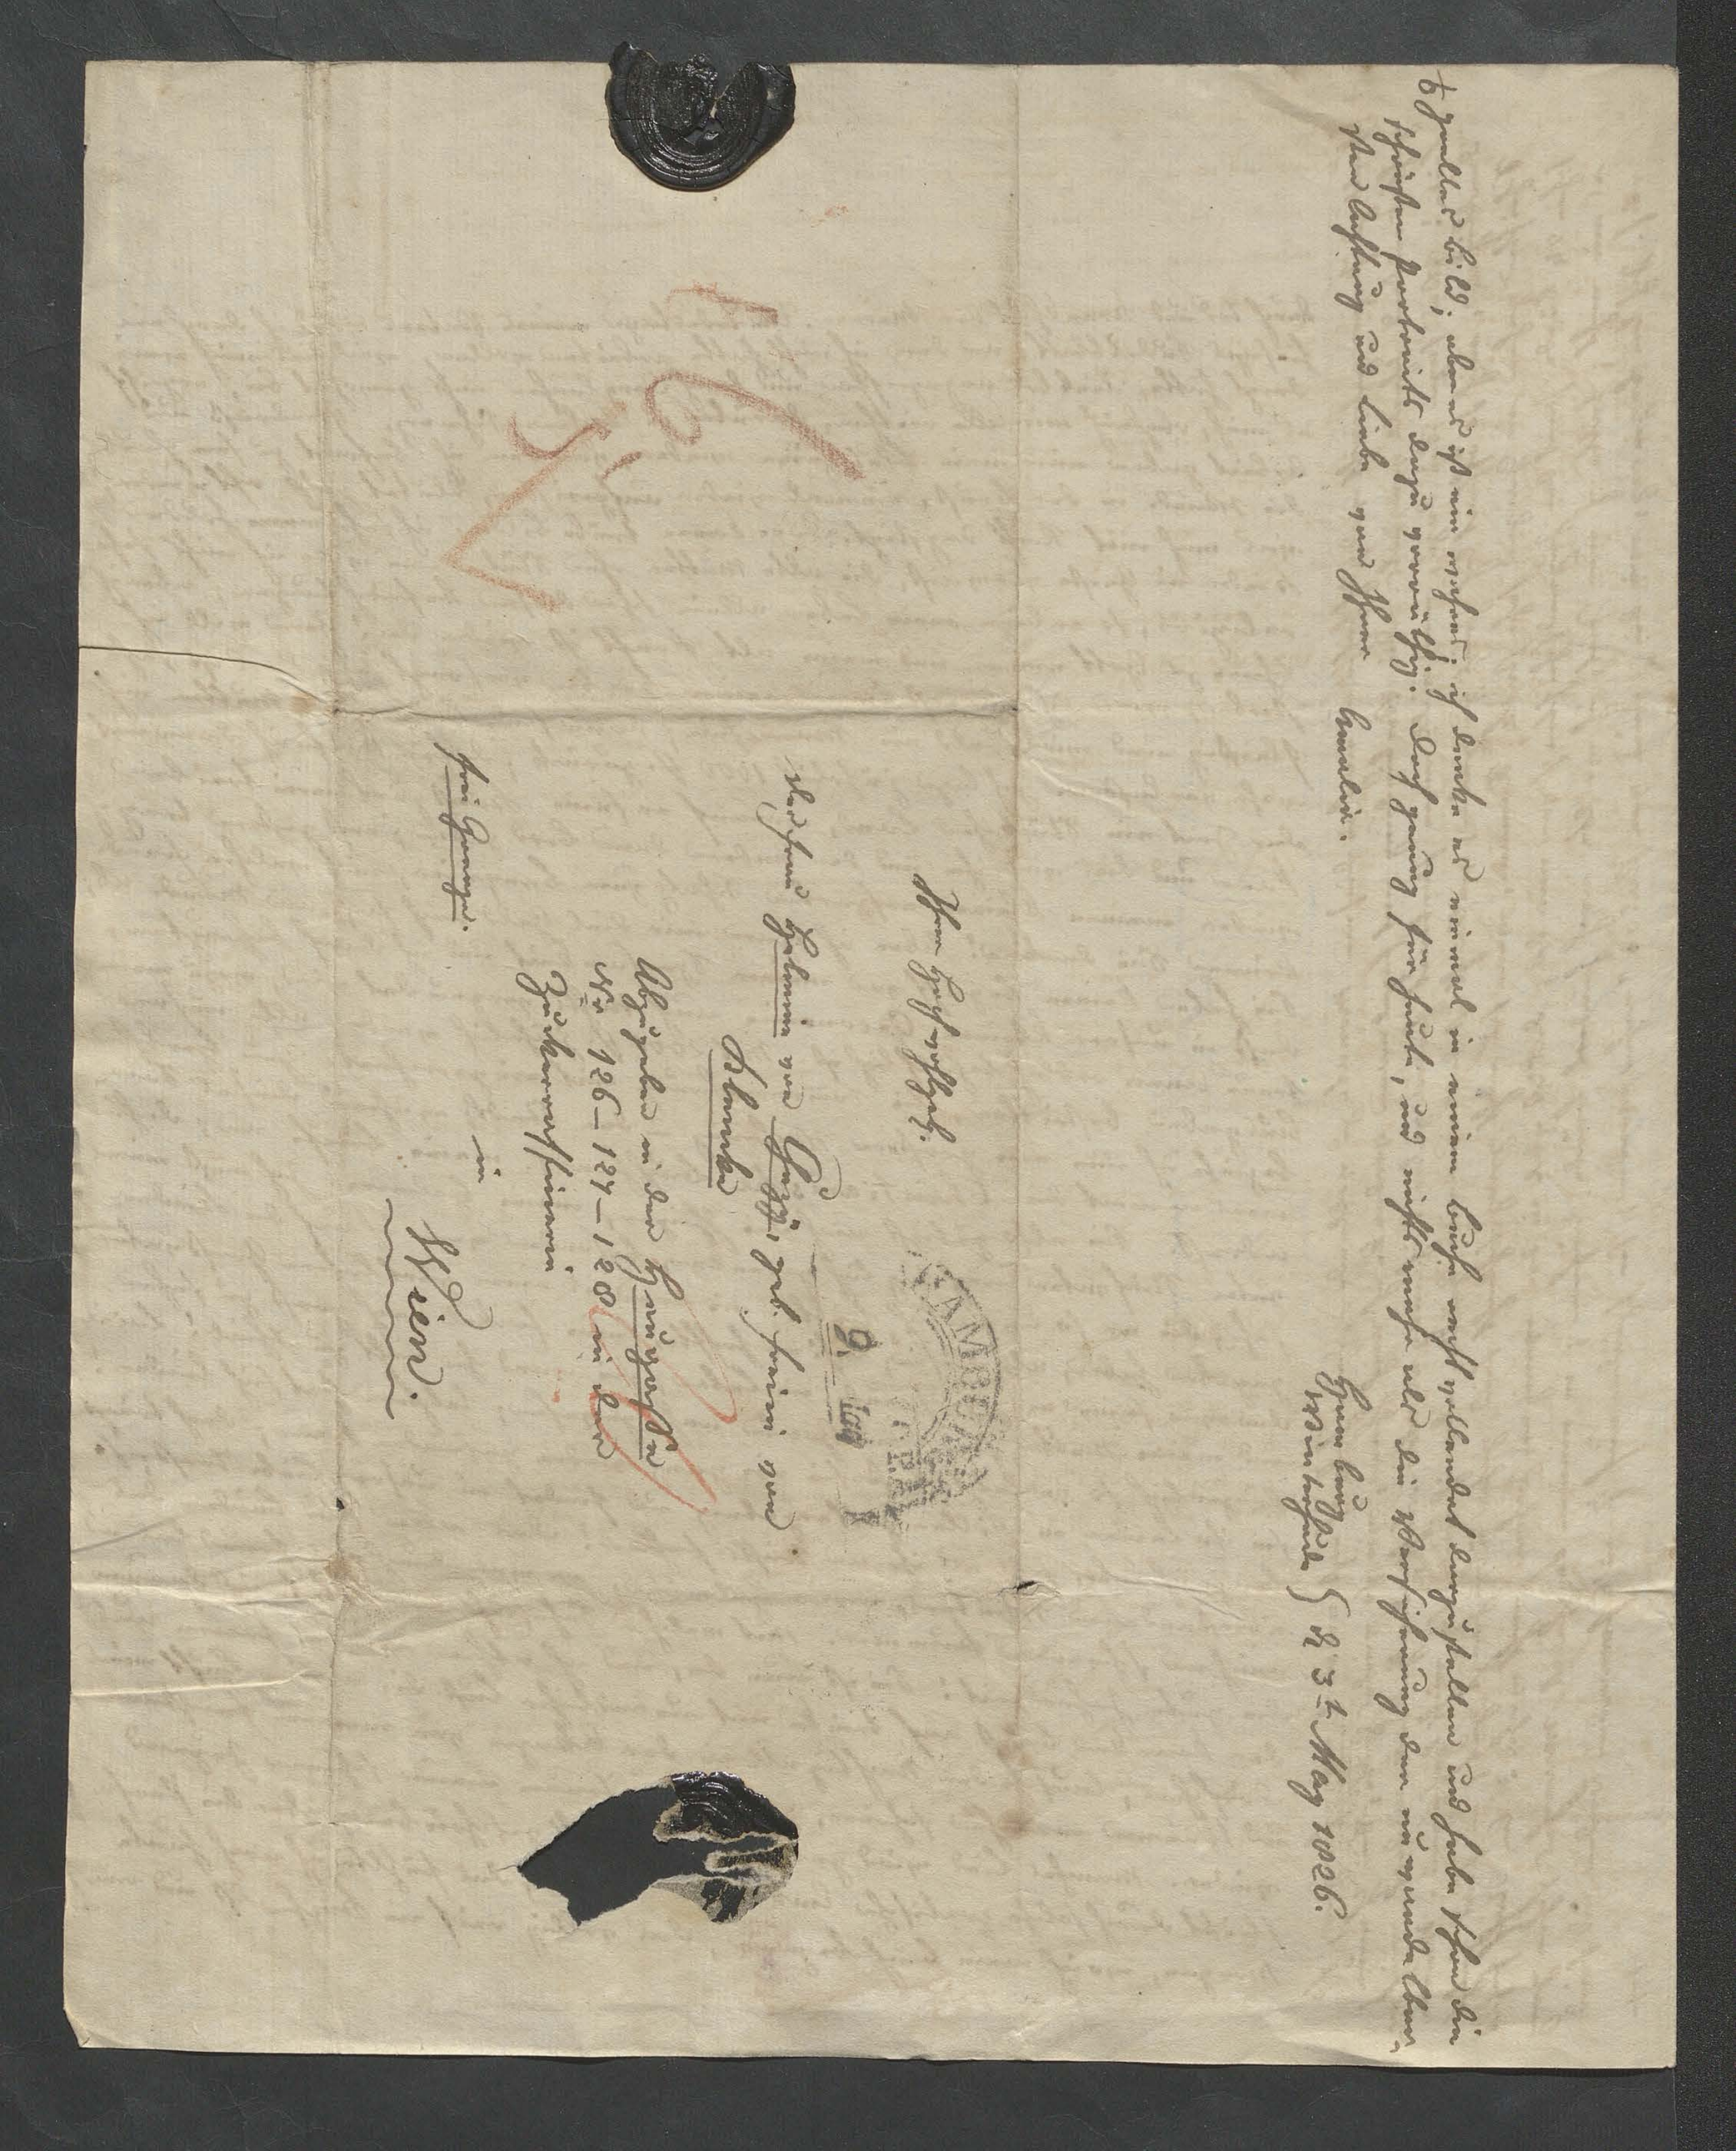 volles bild; aber es ist ein wahres. ich denke es einmal in einem buche recht vollendet darzustellen und habe schon die
schönsten portraits dazu vorräthig. doch genug für heute, und nichts mehr als die Versicherung der unwandelbar-
sten Achtung und Liebe von Ihrer Amalie.
Hamburg
Winterhude } d 3t May 1826.
Ihro Hochwohlgeb.
der frau Helmina von Chezy, geb. freiin von
Klencke
Abzugeben in der
No 126 – 127 – 128 in der
Zuckerraffinerie
in
Wien.
frei Grenze.
HAMBURG
9. May